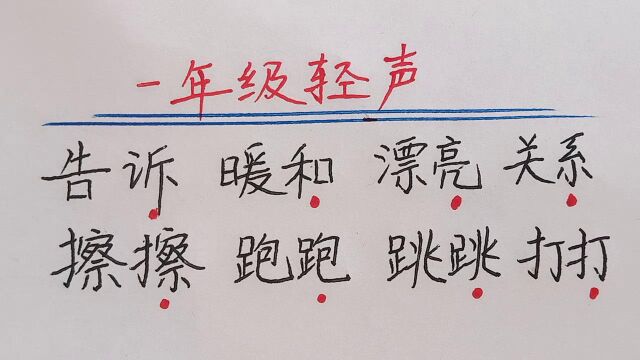 一年级轻声
告诉 暖和 漂亮 关系
擦擦 跑跑 跳跳 打打